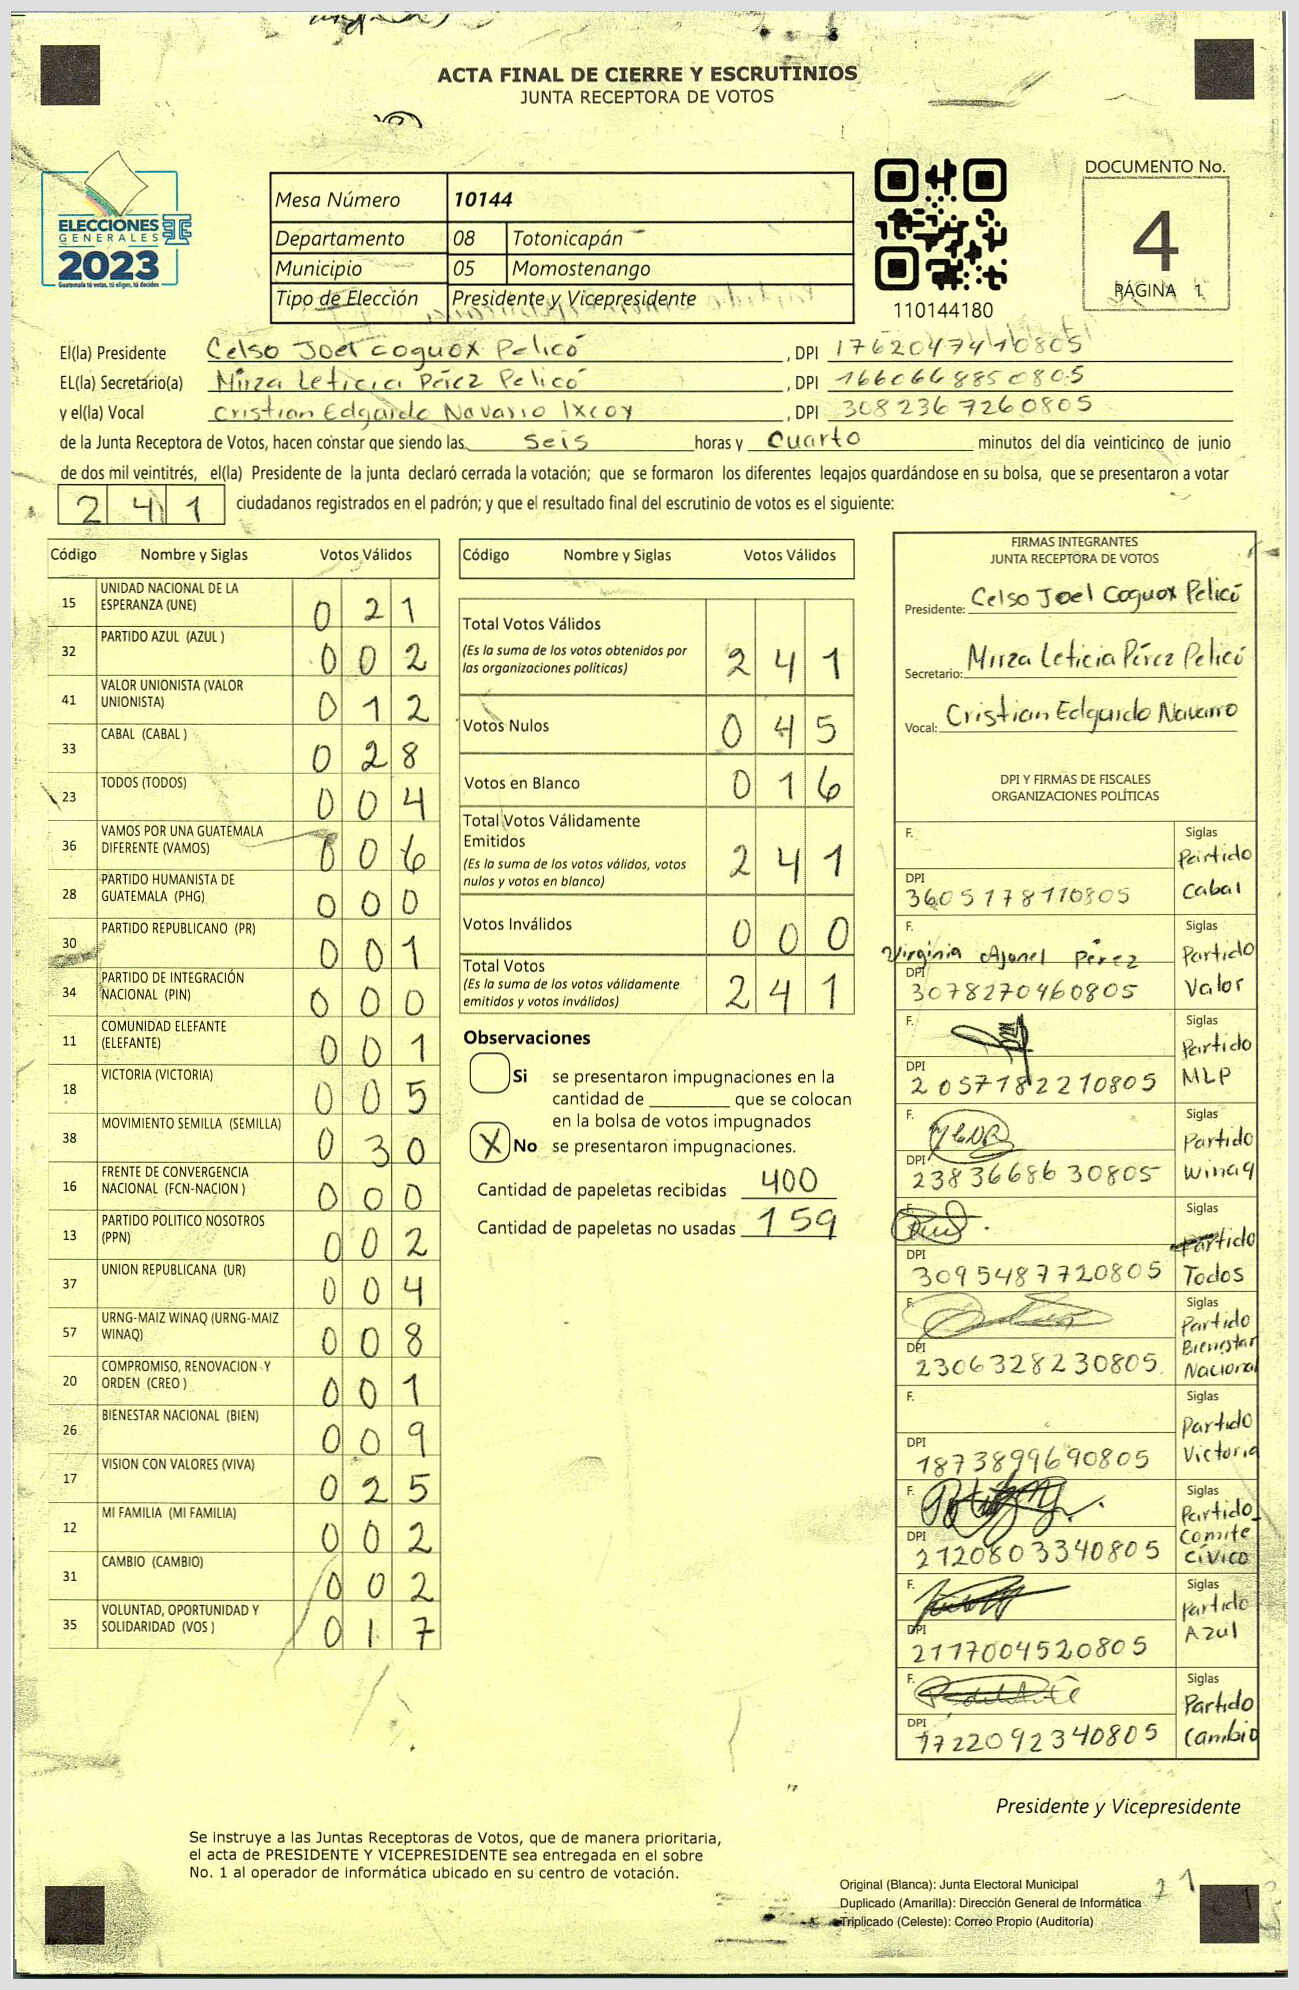 ACTA FINAL DE CIERRE Y ESCRUTINIOS
JUNTA RECEPTORA DE VOTOS
ELECCIONES
GENERALES
2023
Guatemala tú votas, tú eliges, tú decides
Mesa Número 10144
Departamento 08 Totonicapán
Municipio 05 Momostenango
Tipo de Elección Presidente y Vicepresidente
110144180
DOCUMENTO No.
4
PÁGINA 1
El(la) Presidente Celso Joel Coguox Pelicó, DPI 1762047410805
EL(la) Secretario(a) Mirza Leticia Pérez Pelicó, DPI 1660668850805
y el(la) Vocal Cristian Edgardo Navarro Ixcoy, DPI 3082367260805
de la Junta Receptora de Votos, hacen constar que siendo las seis horas y cuarto minutos del día veinticinco de junio
de dos mil veintitrés, el(la) Presidente de la junta declaró cerrada la votación; que se formaron los diferentes legajos quardándose en su bolsa, que se presentaron a votar
241 ciudadanos registrados en el padrón; y que el resultado final del escrutinio de votos es el siguiente:
Código Nombre y Siglas Votos Válidos
15 UNIDAD NACIONAL DE LA ESPERANZA (UNE) 021
32 PARTIDO AZUL (AZUL ) 002
41 VALOR UNIONISTA (VALOR UNIONISTA) 012
33 CABAL (CABAL ) 028
23 TODOS (TODOS) 004
36 VAMOS POR UNA GUATEMALA DIFERENTE (VAMOS) 006
28 PARTIDO HUMANISTA DE GUATEMALA (PHG) 000
30 PARTIDO REPUBLICANO (PR) 001
34 PARTIDO DE INTEGRACIÓN NACIONAL (PIN) 000
11 COMUNIDAD ELEFANTE (ELEFANTE) 001
18 VICTORIA (VICTORIA) 005
38 MOVIMIENTO SEMILLA (SEMILLA) 030
16 FRENTE DE CONVERGENCIA NACIONAL (FCN-NACION ) 000
13 PARTIDO POLITICO NOSOTROS (PPN) 002
37 UNION REPUBLICANA (UR) 004
57 URNG-MAIZ WINAQ (URNG-MAIZ WINAQ) 008
20 COMPROMISO, RENOVACION Y ORDEN (CREO ) 001
26 BIENESTAR NACIONAL (BIEN) 009
17 VISION CON VALORES (VIVA) 025
12 MI FAMILIA (MI FAMILIA) 002
31 CAMBIO (CAMBIO) 002
35 VOLUNTAD, OPORTUNIDAD Y SOLIDARIDAD (VOS ) 017
Código Nombre y Siglas Votos Válidos
Total Votos Válidos
(Es la suma de los votos obtenidos por las organizaciones políticas) 241
Votos Nulos 045
Votos en Blanco 016
Total Votos Válidamente Emitidos
(Es la suma de los votos válidos, votos nulos y votos en blanco) 241
Votos Inválidos 000
Total Votos
(Es la suma de los votos válidamente emitidos y votos inválidos) 241
Observaciones
Si se presentaron impugnaciones en la
cantidad de ________ que se colocan
en la bolsa de votos impugnados
X No se presentaron impugnaciones.
Cantidad de papeletas recibidas 400
Cantidad de papeletas no usadas 159
FIRMAS INTEGRANTES
JUNTA RECEPTORA DE VOTOS
Presidente: Celso Joel Coguox Pelicó
Secretario: Mirza Leticia Pérez Pelicó
Vocal: Cristian Edgardo Navarro
DPI Y FIRMAS DE FISCALES
ORGANIZACIONES POLÍTICAS
F. Siglas Partido Cabal
DPI 3605178110805
F. Virginia Ajanel Pérez Siglas Partido Valor
DPI 3078270460805
F. Siglas Partido MLP
DPI 2057182210805
F. Siglas Partido Winaq
DPI 2383668630805
F. Siglas Partido Todos
DPI 3095487720805
F. Siglas Partido Bienestar Nacional
DPI 2306328230805
F. Siglas Partido Victoria
DPI 1873899690805
F. Siglas Partido Comite Cívico
DPI 2120803340805
F. Siglas Partido Azul
DPI 2117004520805
F. Siglas Partido Cambio
DPI 1722092340805
Presidente y Vicepresidente
Se instruye a las Juntas Receptoras de Votos, que de manera prioritaria,
el acta de PRESIDENTE Y VICEPRESIDENTE sea entregada en el sobre
No. 1 al operador de informática ubicado en su centro de votación.
Original (Blanca): Junta Electoral Municipal
Duplicado (Amarilla): Dirección General de Informática
Triplicado (Celeste): Correo Propio (Auditoría)